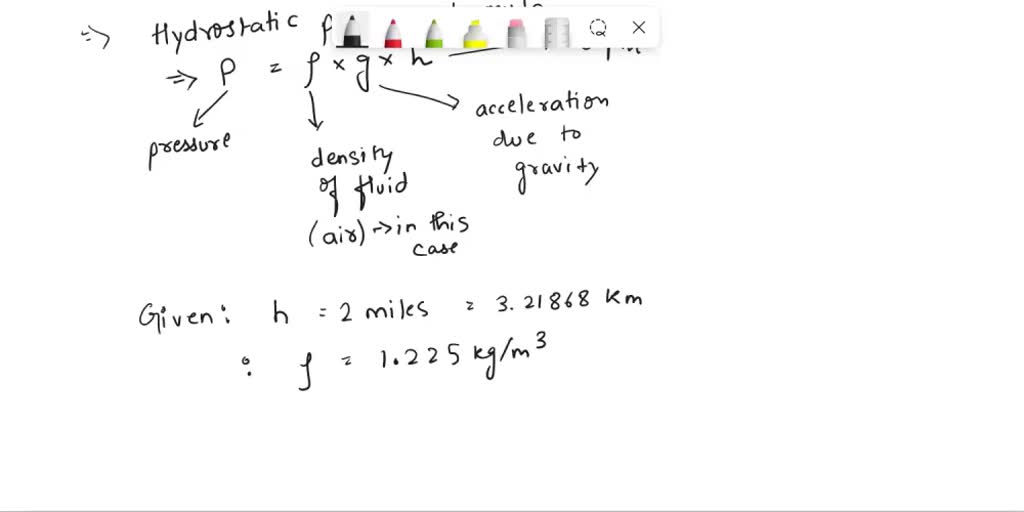 => Hydrostatic
=> P = ρ × g × h
pressure
density of fluid (air) -> in this case
acceleration due to gravity
Given: h = 2 miles = 3.21868 Km
: ρ = 1.225 kg/m³